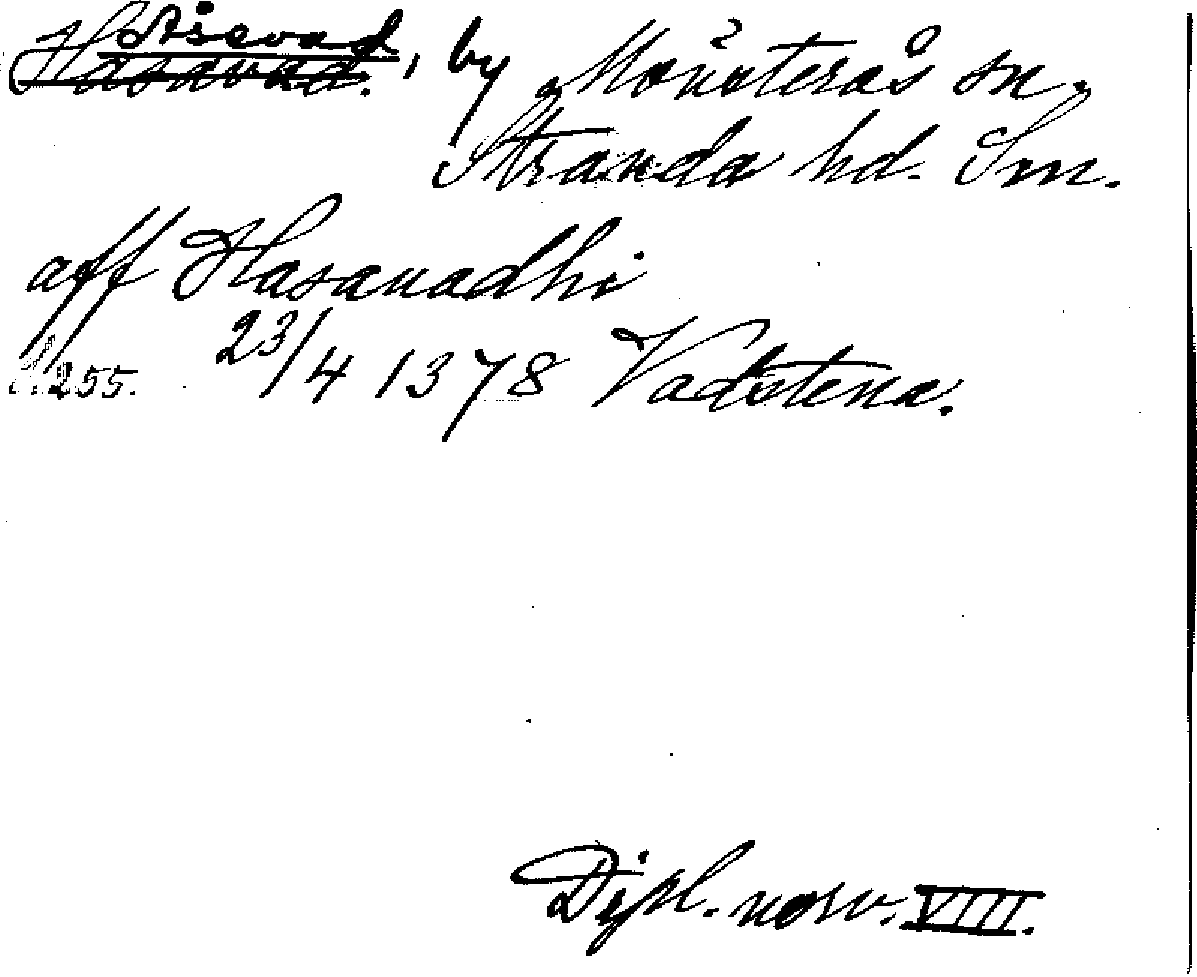 Åsevad
Hasavad., by Mönsterås sn.
Stranda hd. Sm.
aff Hasauadhi
s. 255. 23/4 1378 Vadstena.
Dipl. norv. VIII.